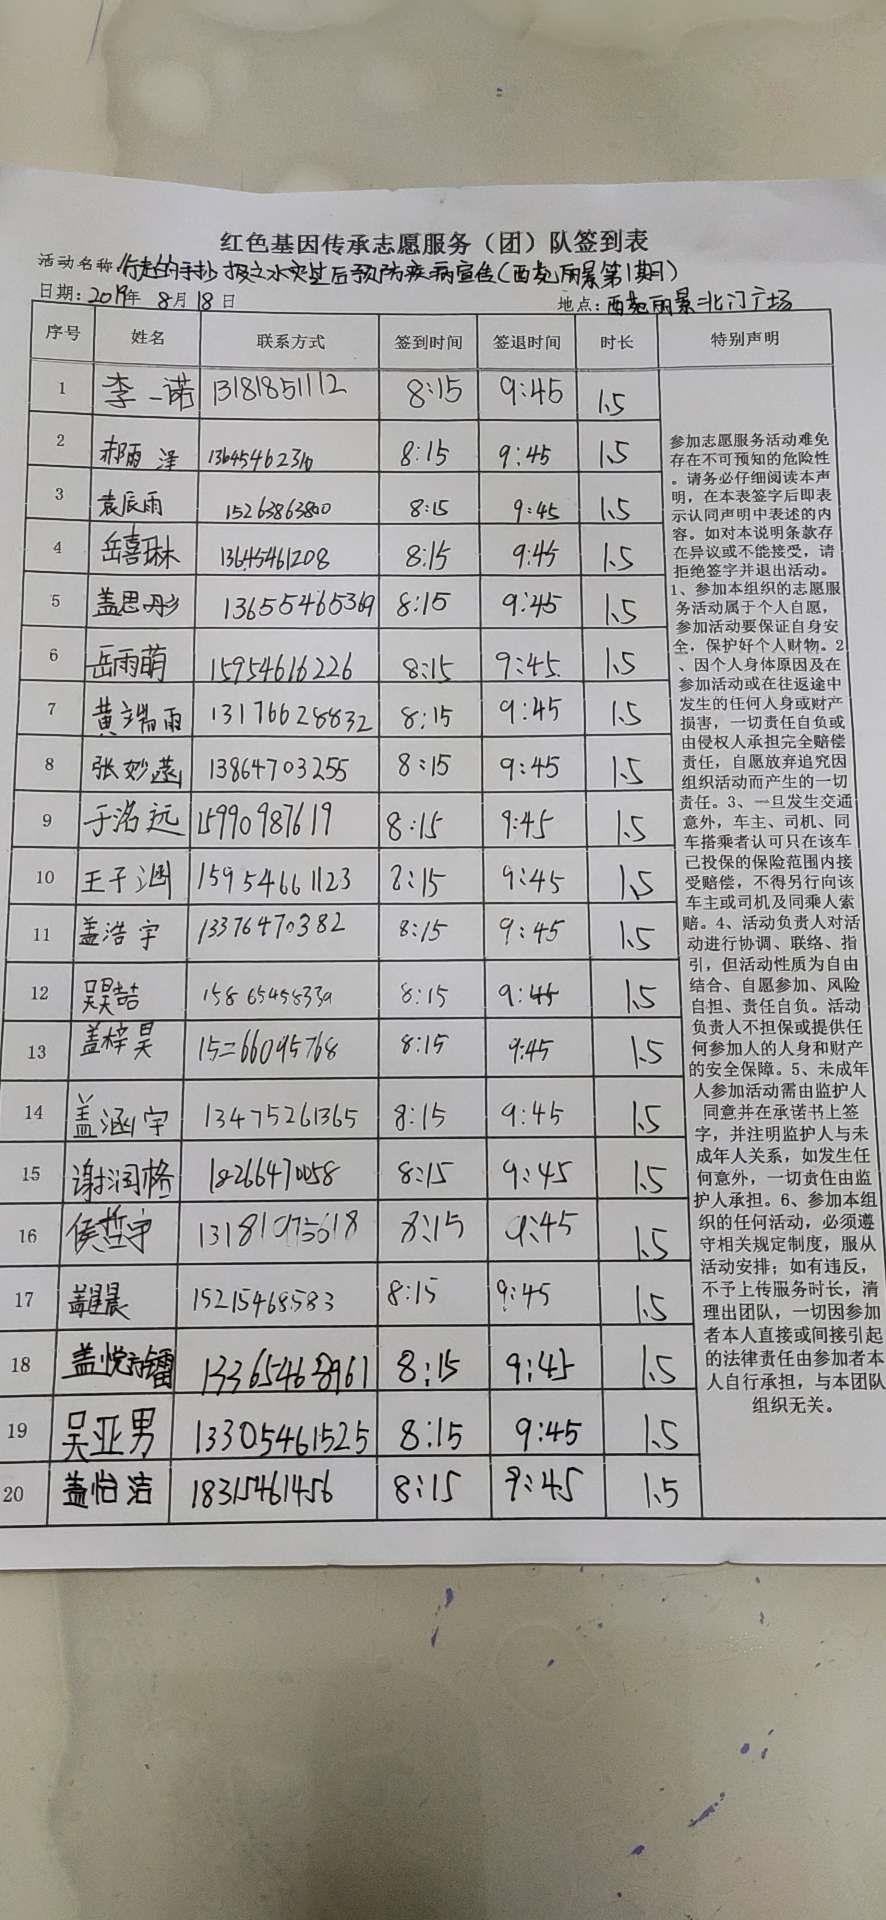 红色基因传承志愿服务（团）队签到表
活动名称：行走的手抄报之水灾过后预防疾病宣传（西苑丽景第1期）
日期：2019年 8月18日 地点：西苑丽景北门广场
序号 姓名 联系方式 签到时间 签退时间 时长 特别声明
1 李一诺 13181851112 8:15 9:45 1.5
2 郝雨泽 8:15 9:45 1.5
3 袁辰雨 15263863800 8:15 9:45 1.5
4 岳喜琳 13645461208 8:15 9:45 1.5
5 盖思彤 13655465369 8:15 9:45 1.5
6 岳雨萌 15954616226 8:15 9:45 1.5
7 黄瑞雨 13176628832 8:15 9:45 1.5
8 张妙涵 13864703255 8:15 9:45 1.5
9 于洺远 15990987619 8:15 9:45 1.5
10 王子涵 15954661123 8:15 9:45 1.5
11 盖浩宇 13376470382 8:15 9:45 1.5
12 吴昊喆 8:15 9:45 1.5
13 盖梓昊 15266095768 8:15 9:45 1.5
14 盖涵宇 13475261365 8:15 9:45 1.5
15 谢润格 18266470058 8:15 9:45 1.5
16 侯哲宇 13181075618 8:15 9:45 1.5
17 15215468583 8:15 9:45 1.5
18 13365468961 8:15 9:45 1.5
19 吴亚男 13305461525 8:15 9:45 1.5
20 盖怡洁 18315461456 8:15 9:45 1.5
参加志愿服务活动难免
存在不可预知的危险性
。请务必仔细阅读本声
明，在本表签字后即表
示认同声明中表述的内
容。如对本说明条款存
在异议或不能接受，请
拒绝签字并退出活动。
1、参加本组织的志愿服
务活动属于个人自愿，
参加活动要保证自身安
全，保护好个人财物。2
、因个人身体原因及在
参加活动或在往返途中
发生的任何人身或财产
损害，一切责任自负或
由侵权人承担完全赔偿
责任，自愿放弃追究因
组织活动而产生的一切
责任。3、一旦发生交通
意外，车主、司机、同
车搭乘者认可只在该车
已投保的保险范围内接
受赔偿，不得另行向该
车主或司机及同乘人索
赔。4、活动负责人对活
动进行协调、联络、指
引，但活动性质为自由
结合、自愿参加、风险
自担、责任自负。活动
负责人不担保或提供任
何参加人的人身和财产
的安全保障。5、未成年
人参加活动需由监护人
同意并在承诺书上签
字，并注明监护人与未
成年人关系，如发生任
何意外，一切责任由监
护人承担。6、参加本组
织的任何活动，必须遵
守相关规定制度，服从
活动安排；如有违反，
不予上传服务时长，清
理出团队，一切因参加
者本人直接或间接引起
的法律责任由参加者本
人自行承担，与本团队
组织无关。